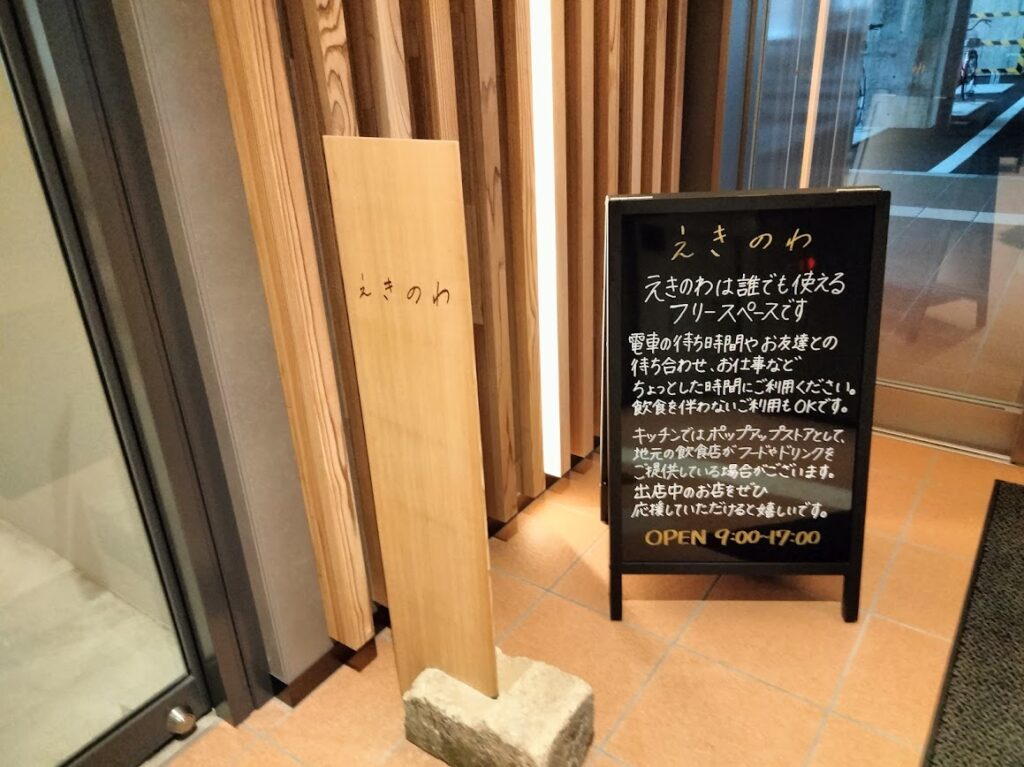 えきのわ
えきのわ
えきのわは誰でも使える
フリースペースです
電車の待ち時間やお友達との
待ち合わせ、お仕事など
ちょっとした時間にご利用ください。
飲食を伴わないご利用もOKです。
キッチンではポップアップストアとして、
地元の飲食店がフードやドリンクを
ご提供している場合がございます。
出店中のお店をぜひ
応援していただけると嬉しいです。
OPEN 9:00~17:00